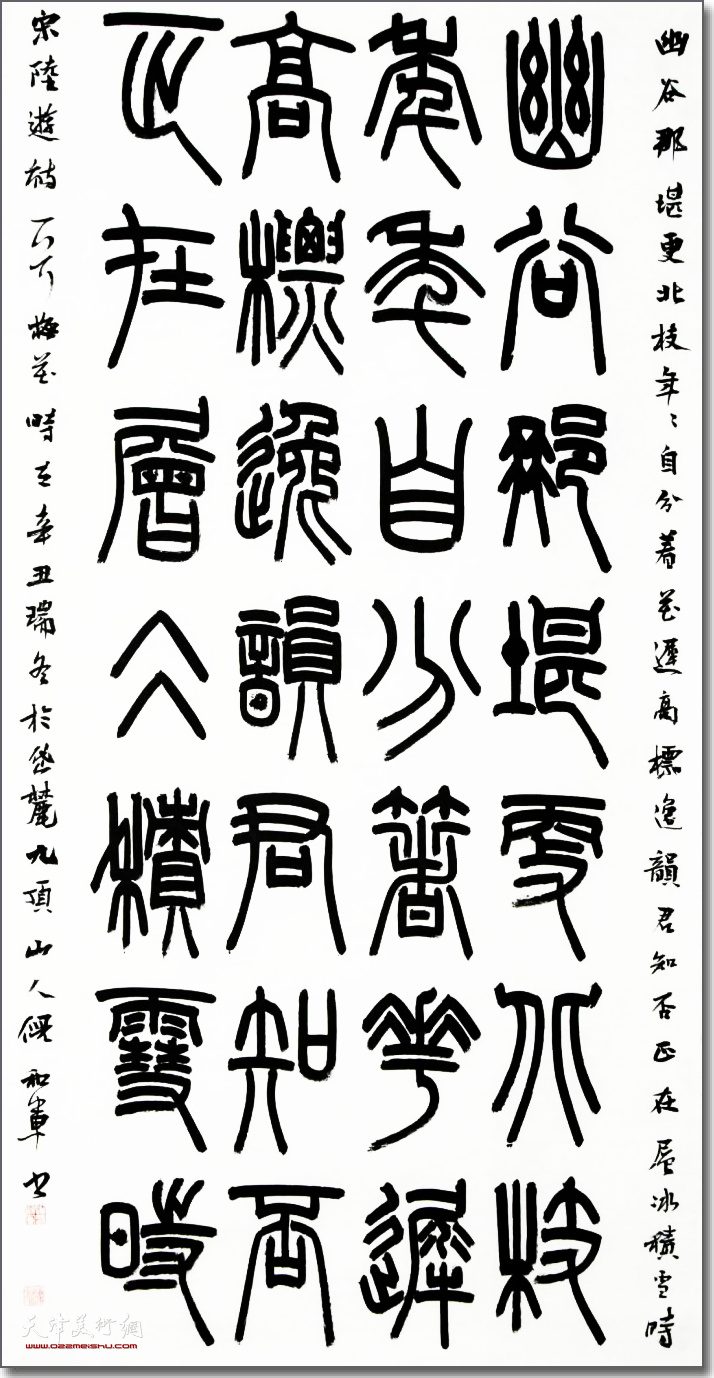 幽谷那堪更北枝年〻自分着花遲高標逸韻君知否正在層冰積雪時
幽谷那堪更北枝
年年自分著花遲
高標逸韻君知否
正在層仌積雪時
宋陸遊詩梅花時在辛丑瑞冬於岱麓九頂山人倪和軍書
天津美術網
www.022meishu.com